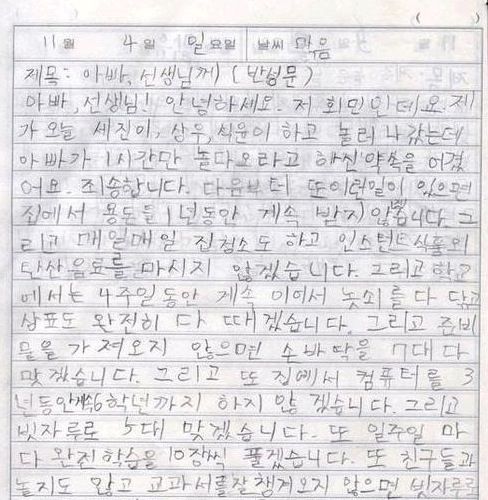 11월 4일 일요일 날씨 맑음
제목: 아빠, 선생님께 (반성문)
아빠, 선생님! 안녕하세요. 저 희민인데요. 제
가 오늘 세진이, 상우, 석윤이 하고 놀러 나갔는데
아빠가 1시간만 놀다오라고 하신약속을 어겼
어요. 죄송합니다. 다음부터 또이런일이 있으면
집에서 용돈을 1년동안 계속 받지 않습니다. 그
리고 매일매일 집청소도 하고 인스턴트식품과
탄산음료를 마시지 않겠습니다. 그리고 학교
에서는 4주일동안 계속 이어서 놋쇠를 다 닦고
상표도 완전히 다 떼겠습니다. 그리고 준비
물을 가져오지 않으면 손바닥을 7대 다
맞겠습니다. 그리고 또 집에서 컴퓨터를 3
년동안계속6학년까지 하지 않겠습니다. 그리고
빗자루로 5대 맞겠습니다. 또 일주일 마
다 완전학습을 10장씩 풀겠습니다. 또 친구들과
놀지도 않고 교과서를잘챙겨오지 않으면 빗자루로